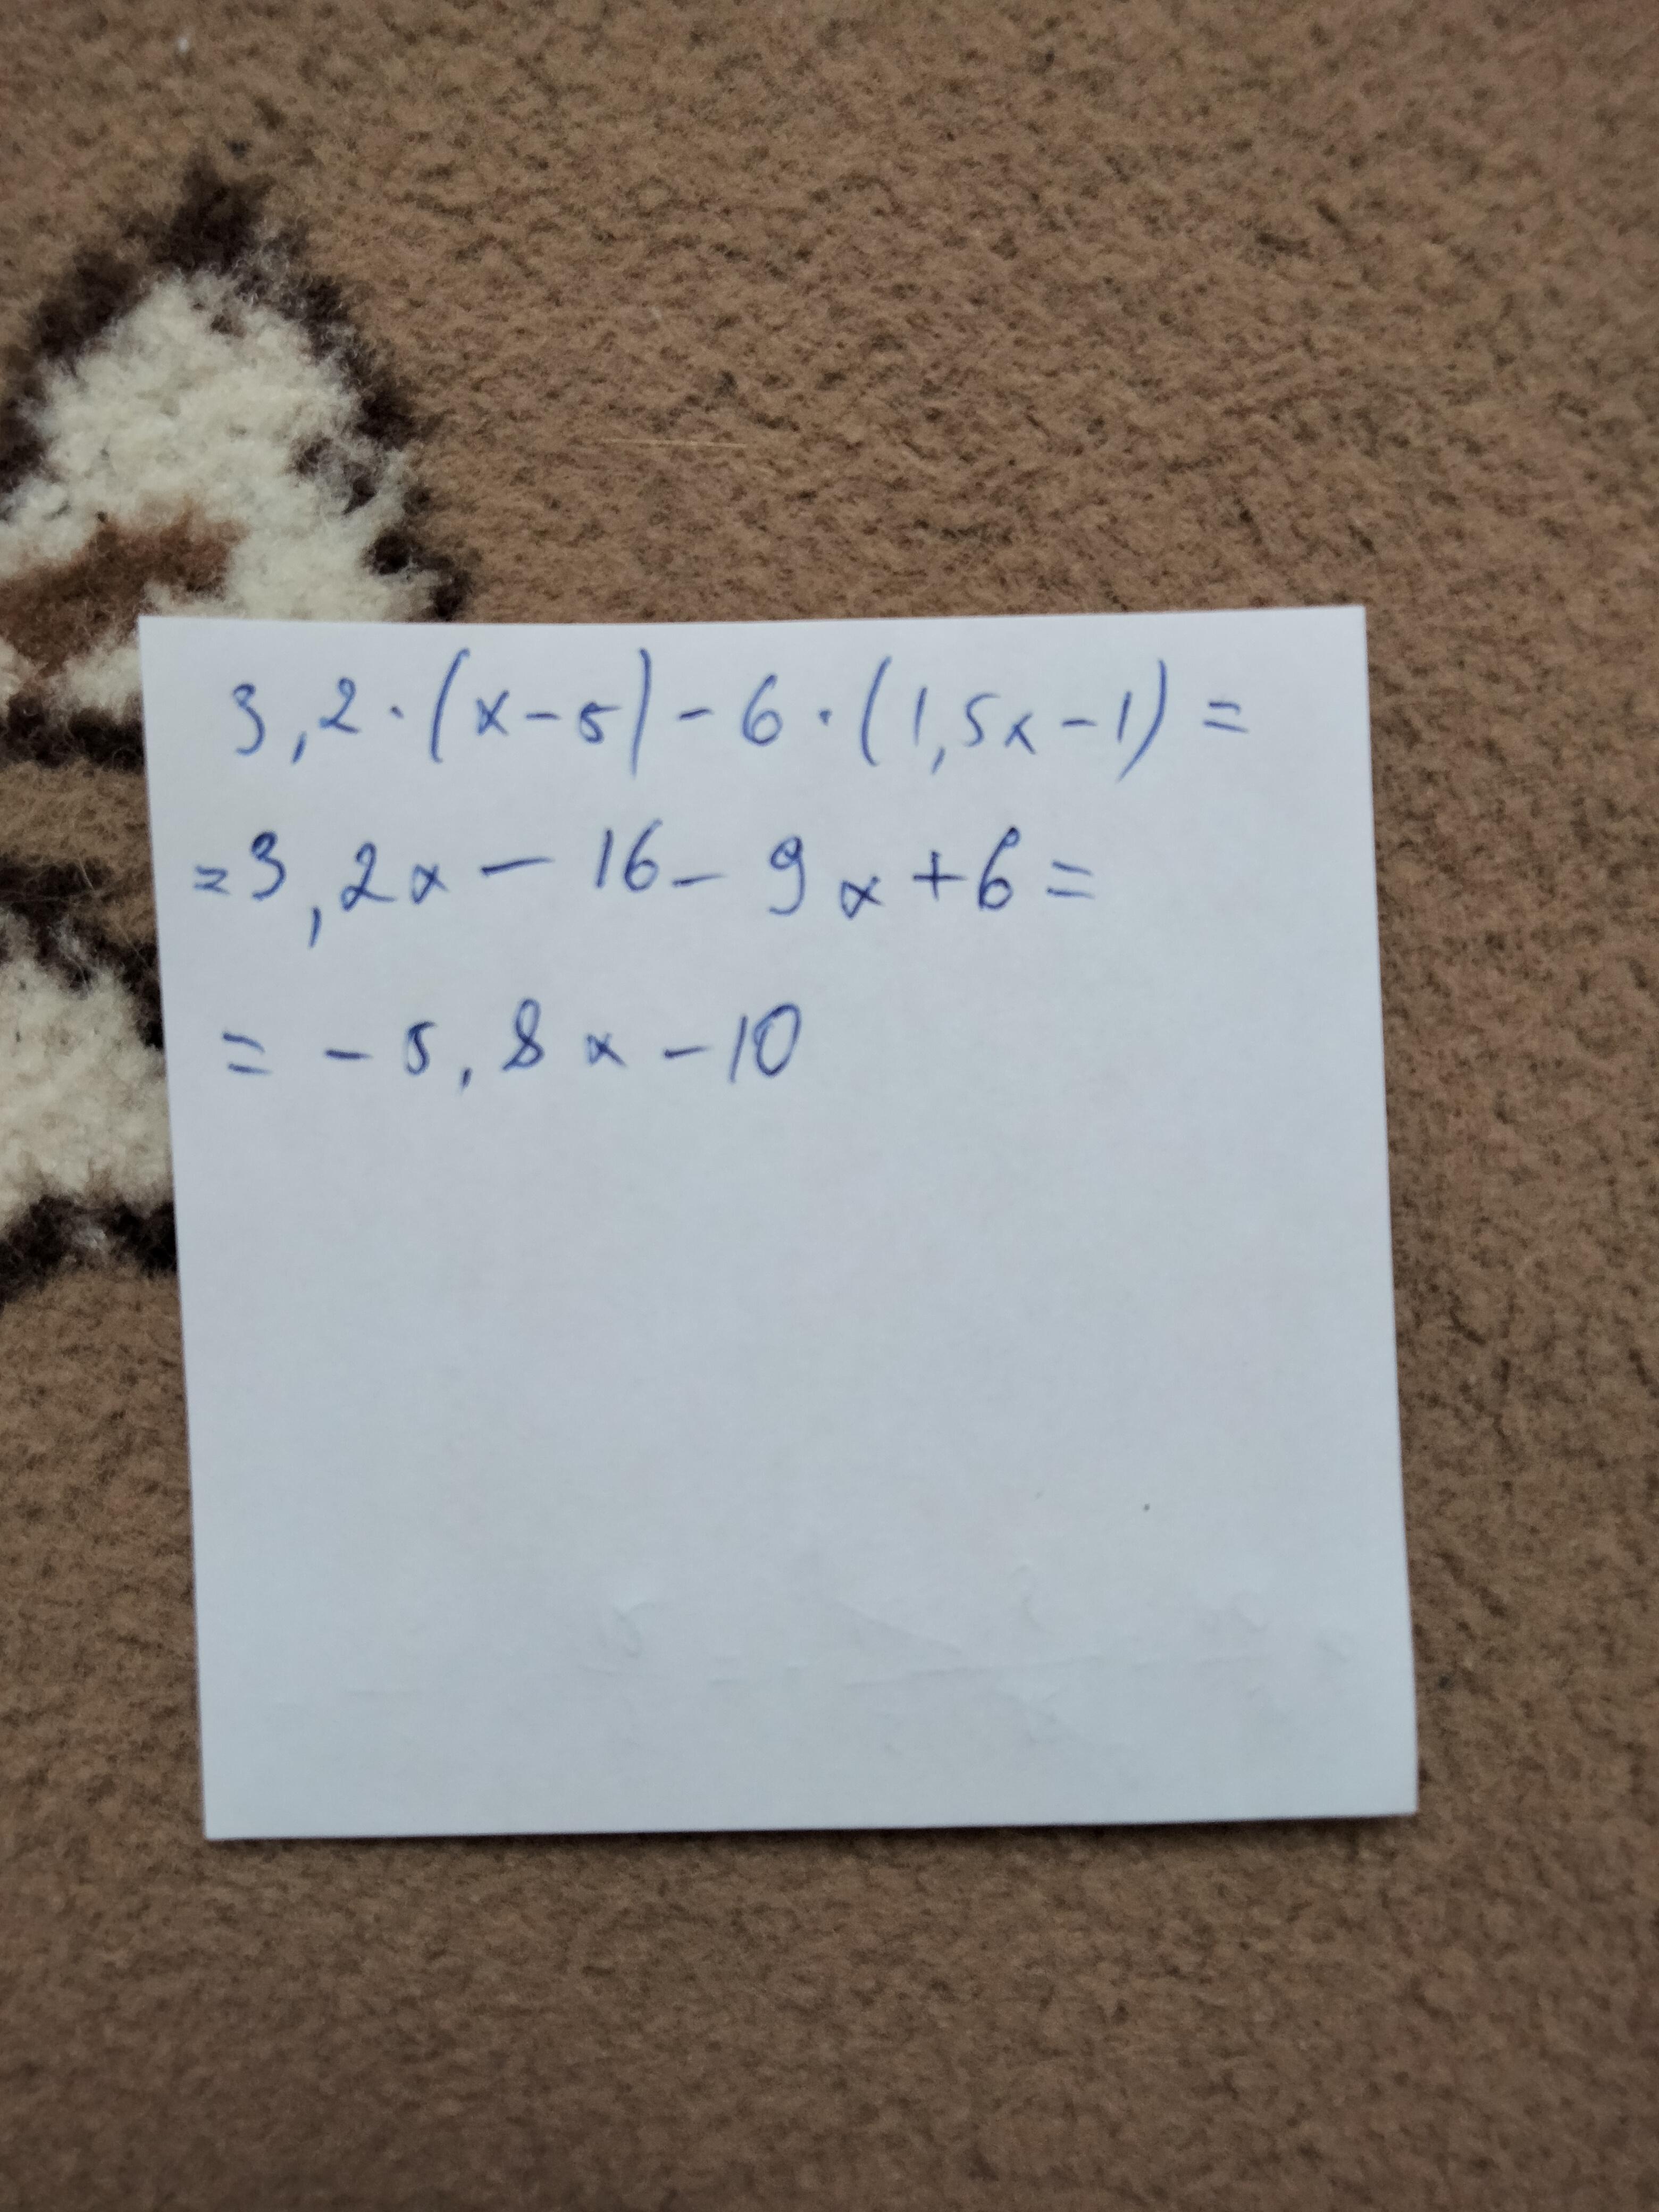 3,2·(x-5)-6·(1,5x-1)=
=3,2x-16-9x+6=
=-5,8x-10